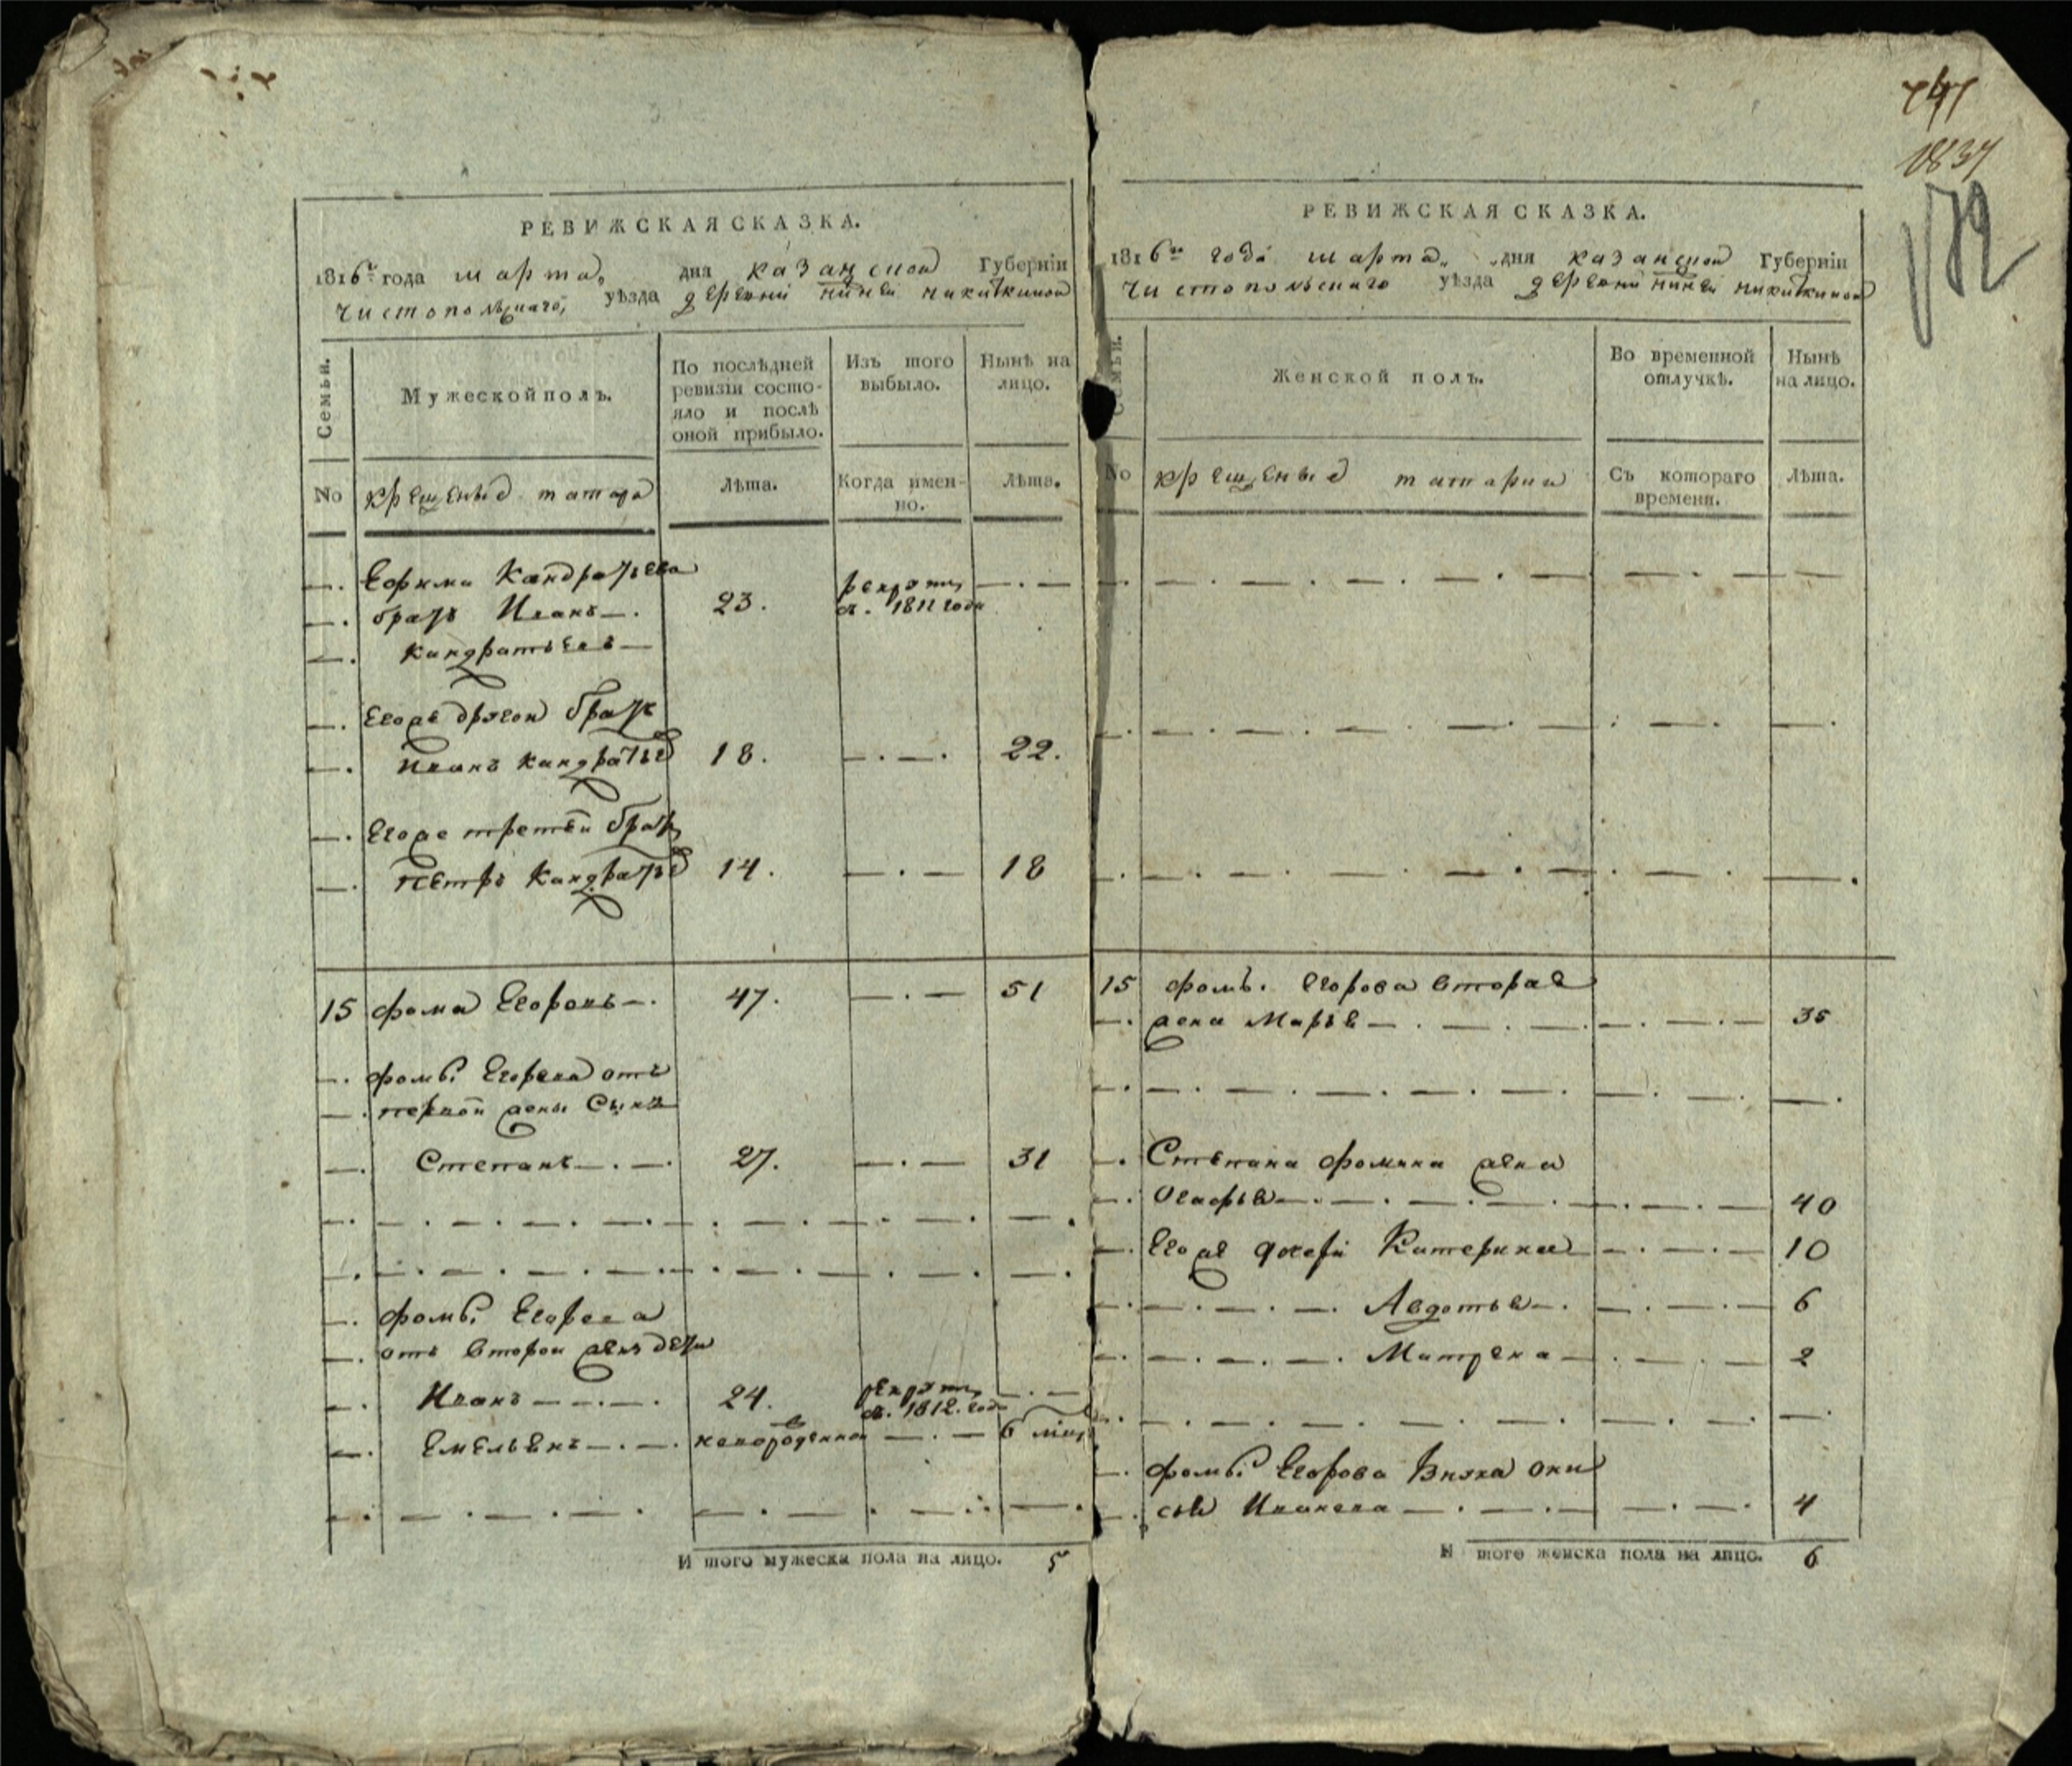 747
1837
172
РЕВИЖСКАЯ СКАЗКА.
1816го года марта дня казанской Губерніи
чистопольскаго уѣзда деревни никиткиной
Семьи.
Мужеской полъ.
По послѣдней ревизіи состояло и послѣ оной прибыло.
Изъ того выбыло.
Нынѣ на лицо.
No
крещеные татара
Лѣта.
Когда именно.
Лѣта.
Ефима Кандратьева
братъ Иванъ 23. рекруты
в. 1811 году
кандратьевъ
Егоже другой братъ
Иванъ кандратье 18. 22.
Егоже третей братъ
Петръ Кандратье 14. 18
15 фома Егоровъ 47. 51
фомы Егорова отъ
первой жены Сынъ
Степанъ 27. 31
фомы Егорова
отъ второй жены дети
Иванъ 24. рекруты
в. 1812. году
Емельянъ новорожденной 6 мец
И того мужеска пола на лицо. 5
РЕВИЖСКАЯ СКАЗКА.
1816го года марта дня казанской Губерніи
чистопольскаго уѣзда деревни никиткиной
Семьи.
Женской полъ.
Во временной отлучкѣ.
Нынѣ на лицо.
No
крещеные татарки
Съ котораго времени.
Лѣта.
15 фомы Егорова вторая
жена Марья 35
Степана фомина жена
Огафья 40
Егоже дочери Катерина 10
Авдотья 6
Матрена 2
фомы Егорова Внука они
сья Иванова 4
И того женска пола на лицо. 6